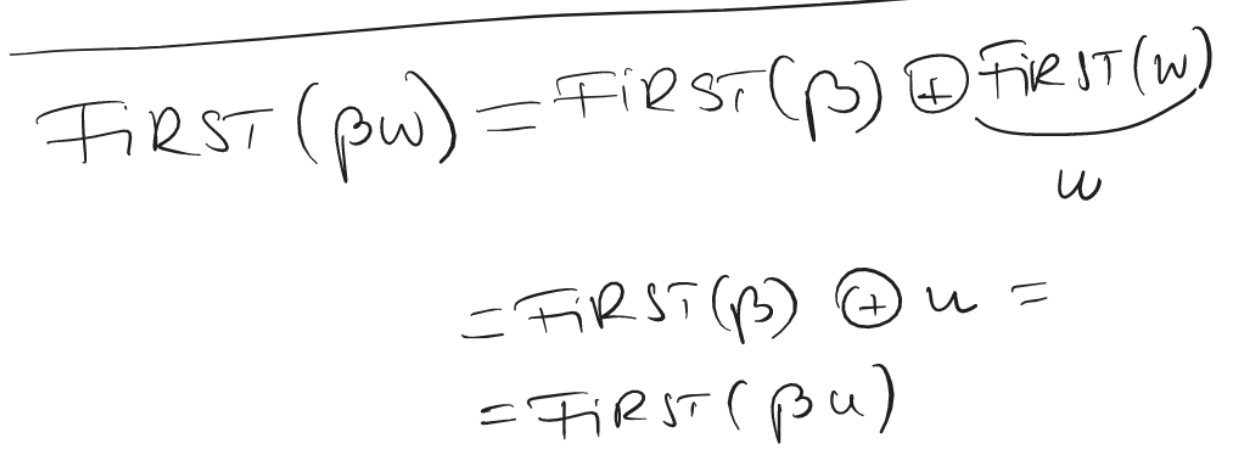 FiRST (βw) = FiRST(β) ⊕ FiRST(w)
u
= FiRST(β) ⊕ u =
= FiRST(βu)